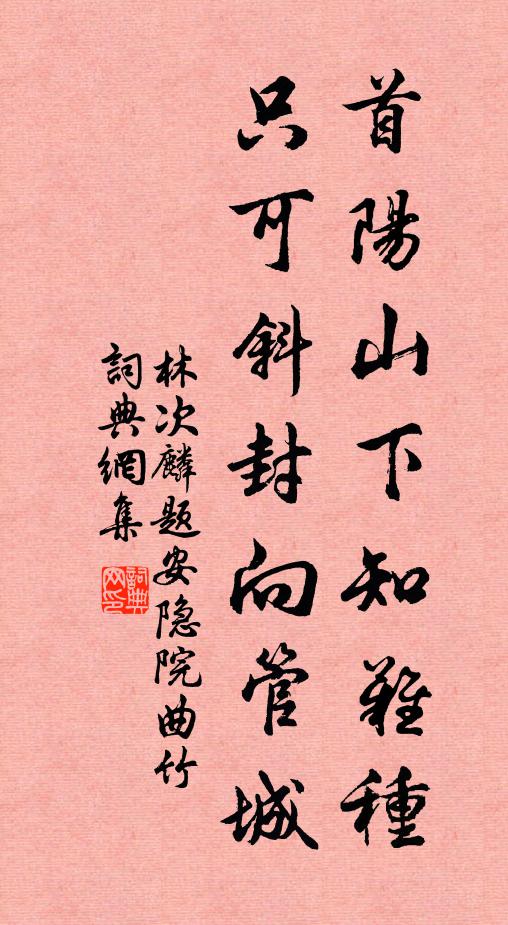 首陽山下知難種
只可斜封向管城
林次麟题安隐院曲竹
詞典網集
詞典网印